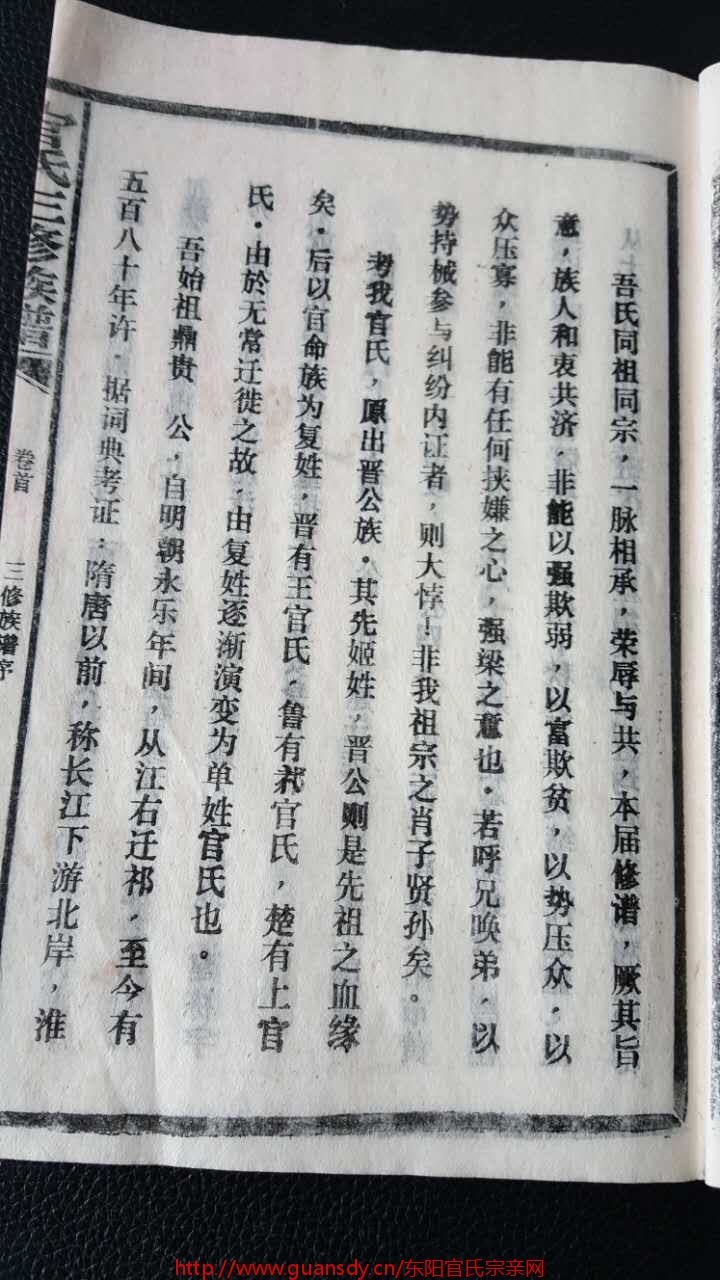 吾氏同祖同宗，一脉相承，荣辱与共，本届修谱，厥其旨
意，族人和衷共济，非能以强欺弱，以富欺贫，以势压众，以
众压寡，非能有任何挟嫌之心，强梁之意也．若呼兄唤弟，以
势持械参与纠纷内证者，则大悖！非我祖宗之肖子贤孙矣。
考我官氏，原出晋公族．其先姬姓，晋公则是先祖之血缘
矣．后以官命族为复姓，晋有王官氏，鲁有 官氏，楚有上官
氏．由於无常迁徙之故，由复姓逐渐演变为单姓官氏也。
吾始祖鼎贵 公，自明朝永乐年间，从江右迁祁，至今有
五百八十年许．据词典考证：隋唐以前，称长江下游北岸，淮
官氏三修族谱
卷首
三修族谱序
http://www.guansdy.cn/东阳官氏宗亲网